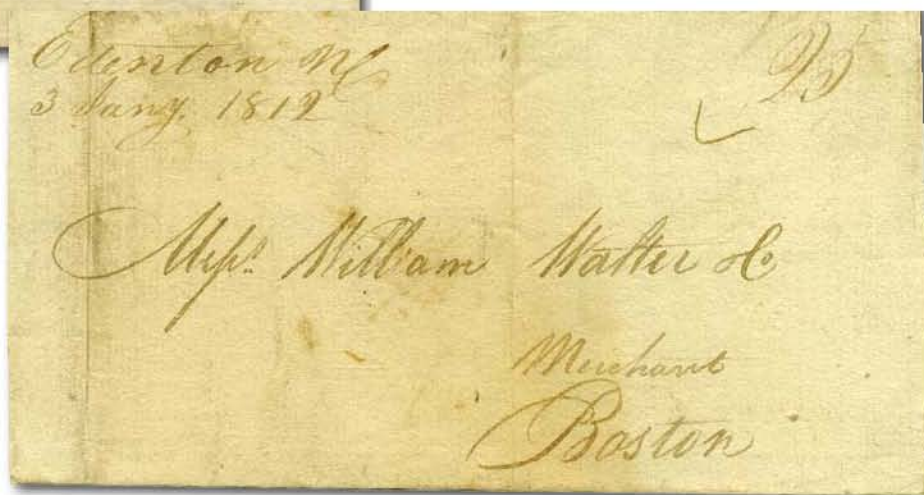 Edenton NC
3 Jany. 1812
25
Messrs. William Walter & Co
Merchant
Boston